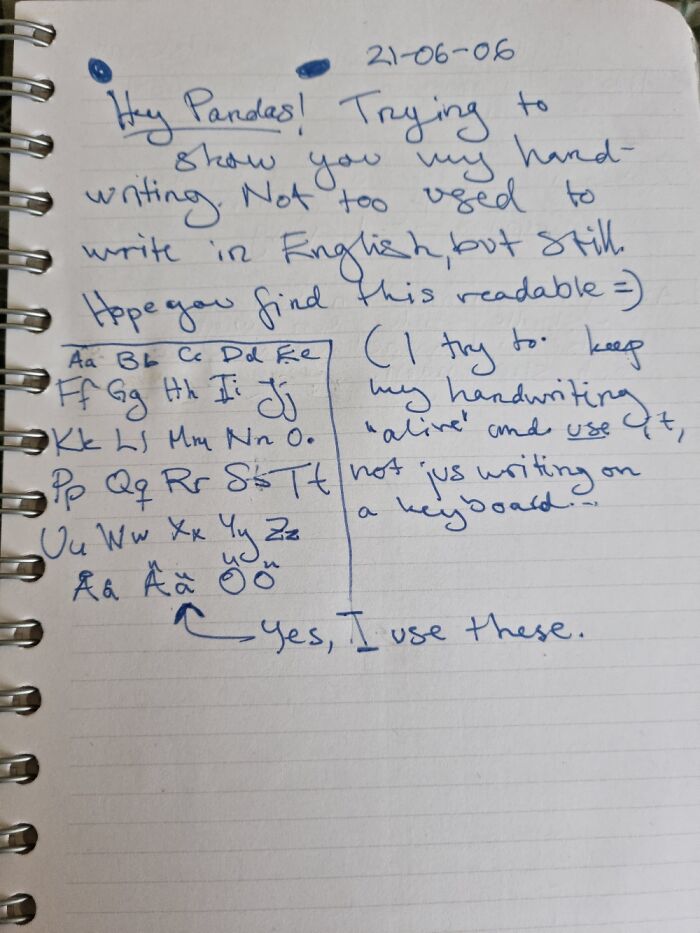 21-06-06
Hey Pandas! Trying to
show you my hand-
writing. Not too used to
write in English, but still.
Hope you find this readable =)
Aa Bb Cc Dd Ee
Ff Gg Hh Ii Jj
Kk Ll Mm Nn Oo
Pp Qq Rr Ss Tt
Uu Ww Xx Yy Zz
Åå Ää Öö
(I try to keep
my handwriting
"alive" and use it,
not jus writing on
a keyboard...
Yes, I use these.